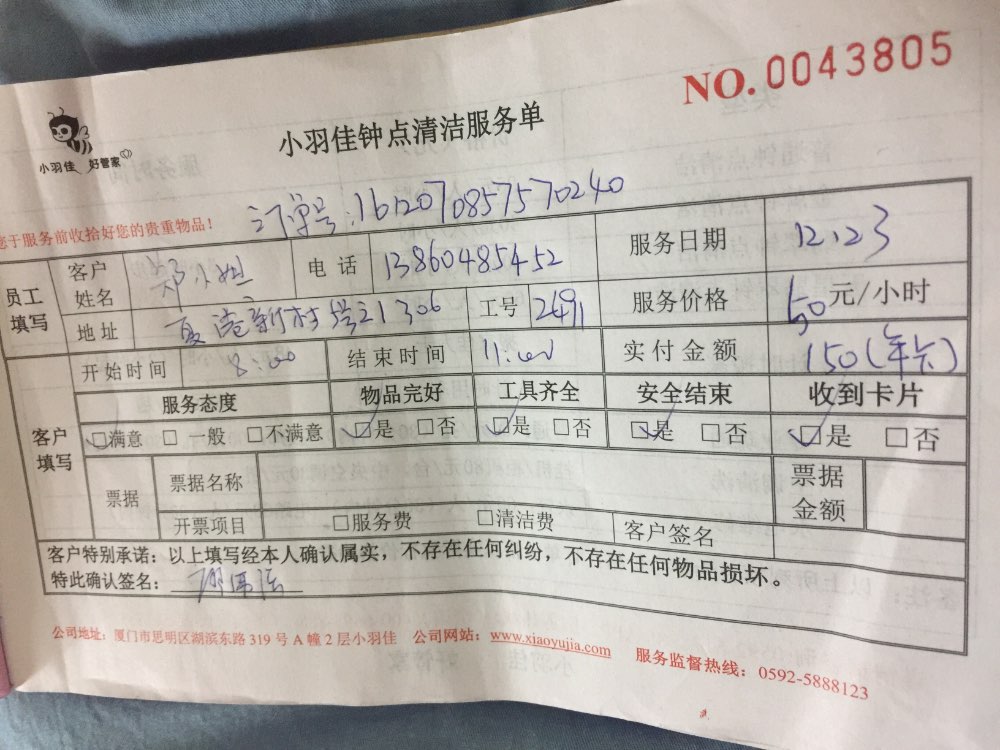 NO.0043805
小羽佳 好管家
小羽佳钟点清洁服务单
您于服务前收拾好您的贵重物品！
订单号:1612070857570240
员工填写
客户姓名 郑小姐 电话 13860485452 服务日期 12.23
地址 306 工号 2491 服务价格 50元/小时
开始时间 8:00 结束时间 11:00 实付金额 150(年卡)
客户填写
服务态度 物品完好 工具齐全 安全结束 收到卡片
☑满意 □一般 □不满意 ☑是 □否 ☑是 □否 ☑是 □否 ☑是 □否
票据 票据名称 票据金额
开票项目 □服务费 □清洁费 客户签名
客户特别承诺：以上填写经本人确认属实，不存在任何纠纷，不存在任何物品损坏。
特此确认签名：
公司地址：厦门市思明区湖滨东路319号A幢2层小羽佳 公司网站：www.xiaoyujia.com 服务监督热线：0592-5888123